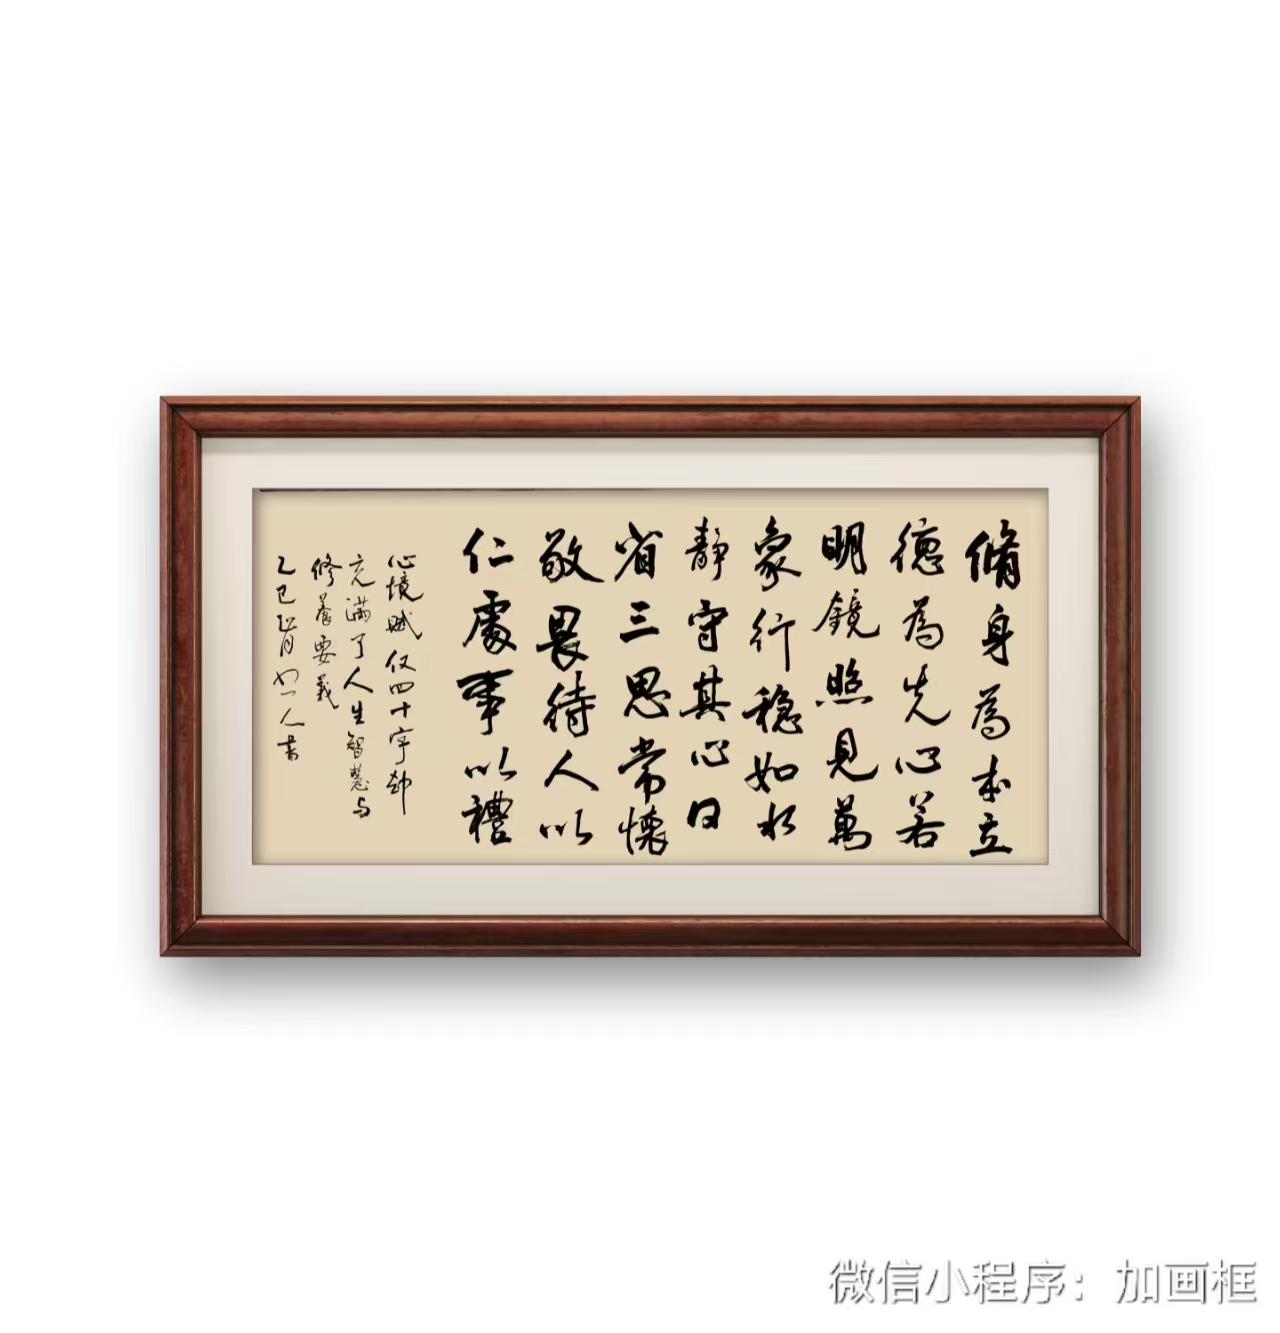 脩身為本立
德為先心若
明鏡照見萬
象行穩如水
靜守其心日
省三思常懷
敬畏待人以
仁處事以禮
心境賦仅四十字却
充满了人生智慧与
修養要義
乙巳 一人書
微信小程序：加画框